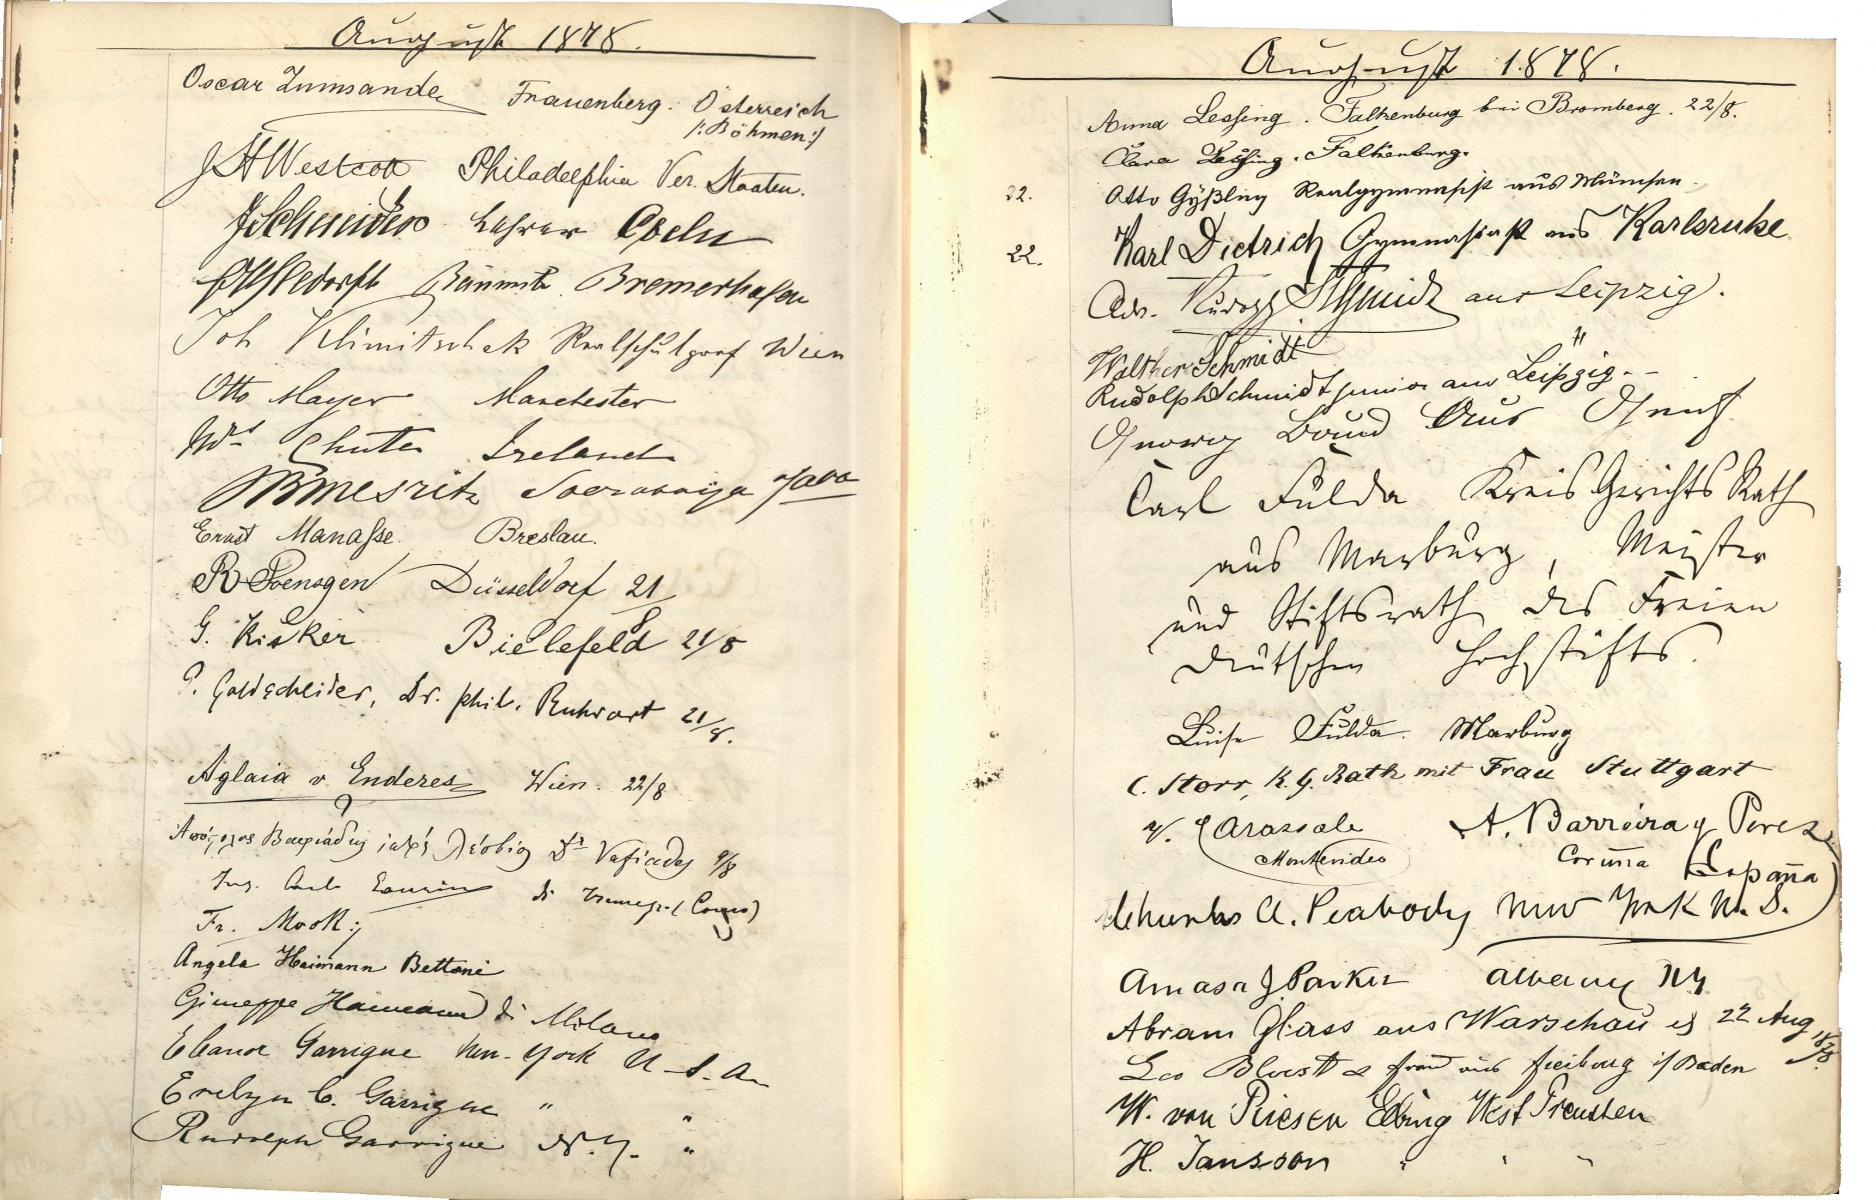 August 1878.
Oscar Zumsande Frauenberg. Österreich
/:Böhmen:/
J H Westcott Philadelphia Ver. Staaten.
J Schneider Lehrer Coeln
Bremerhafen
Joh Klimitschek Realschulprof Wien
Otto Mayer Manchester
Mrs Chute Ireland
Mesritz Soerabaija Java
Ernst Manasse Breslau.
R Poensgen Düsseldorf 21/8
G. Kisker Bielefeld 21/8
P. Goldscheider, Dr. phil. Ruhrort 21/8.
Aglaia v. Enderes Wien. 22/8
Dr Vafiadis 9/8
Ing. Carlo di (Como)
Fr. Mook
Angela Haimann Bettoni
Giuseppe Haimann di Milano
Eleanor Garrigue New-York U.S.A.
Evelyn C. Garrigue " "
Rudolph Garrigue N.Y. "
August 1878.
Anna Lessing. Falkenburg bei Bromberg. 22/8.
Clara Lessing. Falkenburg.
22. Otto Gyßling Realgymnasist aus München.
22. Karl Dietrich Gymnasiast aus Karlsruhe
Adv. Rudolph Schmidt aus Leipzig.
Walther Schmidt "
Rudolph Schmidt junior aus Leipzig.
aus
Carl Fulda Kreis Gerichts Rath
aus Marburg, Meister
und Stiftsrath des Freien
deutschen Hochstifts.
Luise Fulda. Marburg
C. Storr, K. G. Rath mit Frau Stuttgart
A. Barreira y Perez
Montevideo
Coruña España
Charles A. Peabody New York U. S.
Amasa J Parker Albany NY
Abram Glass aus Warschau 22 Aug 1878
Leo & Frau aus Freiburg i/Baden
W. von Riesen Elbing West Preussen
H. Jansson " " "